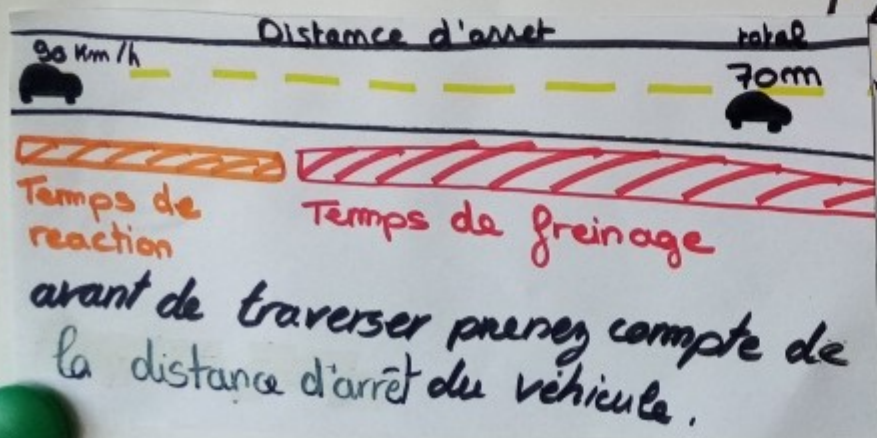 Distance d'arret
90 Km/h
total
70m
Temps de
reaction
Temps de freinage
avant de traverser prenez compte de
la distance d'arrêt du véhicule.